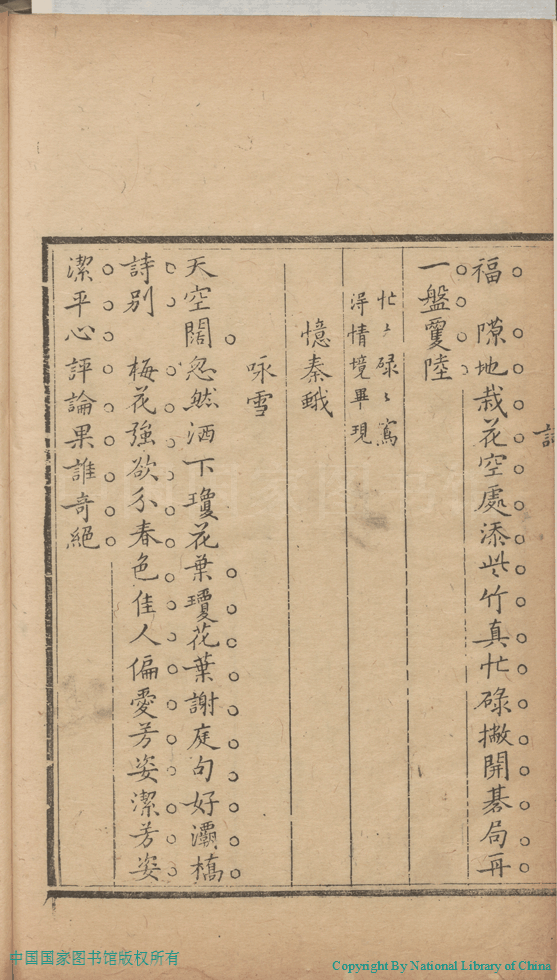 福　隙地栽花空處添些竹真忙碌撇開碁局再
一盤雙陸
忙〻碌〻寫
得情境畢現
憶秦娥
咏雪
天空闊忽然洒下瓊花葉瓊花葉謝庭句好灞橋
詩別　梅花強欲分春色佳人偏愛芳姿潔芳姿
潔平心評論果誰奇絕
中国国家图书馆版权所有
Copyright By National Library of China